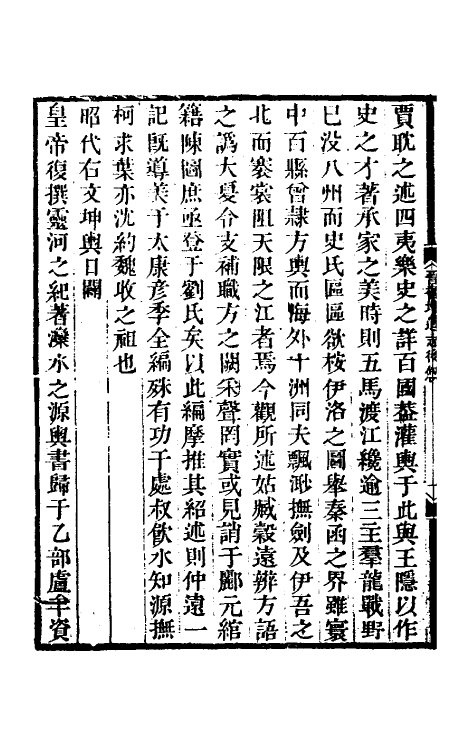 賈耽之述四夷樂史之詳百國葢灌輿于此與王隱以作
史之才著承家之美時則五馬渡江纔逾三主羣龍戰野
已没八州而史氏區區欲桉伊洛之圖舉秦函之界雖寰
中百縣曾隸方輿而海外十洲同夫飄渺撫劍及伊吾之
北而褰裳阻天限之江者焉今觀所述姑臧穀遠辨方語
之譌大夏令支補職方之闕采聲罔實或見誚于酈元綰
籍陳圖庶亟登于劉氏矣以此編摩推其紹述則仲遠一
記旣導美于太康彥季全編殊有功于處叔飲水知源撫
柯求葉亦沈約魏收之祖也
昭代右文坤輿日闢
皇帝復撰靈河之紀著灤水之源輿書歸于乙部盧牟資
晉書地道志後叙